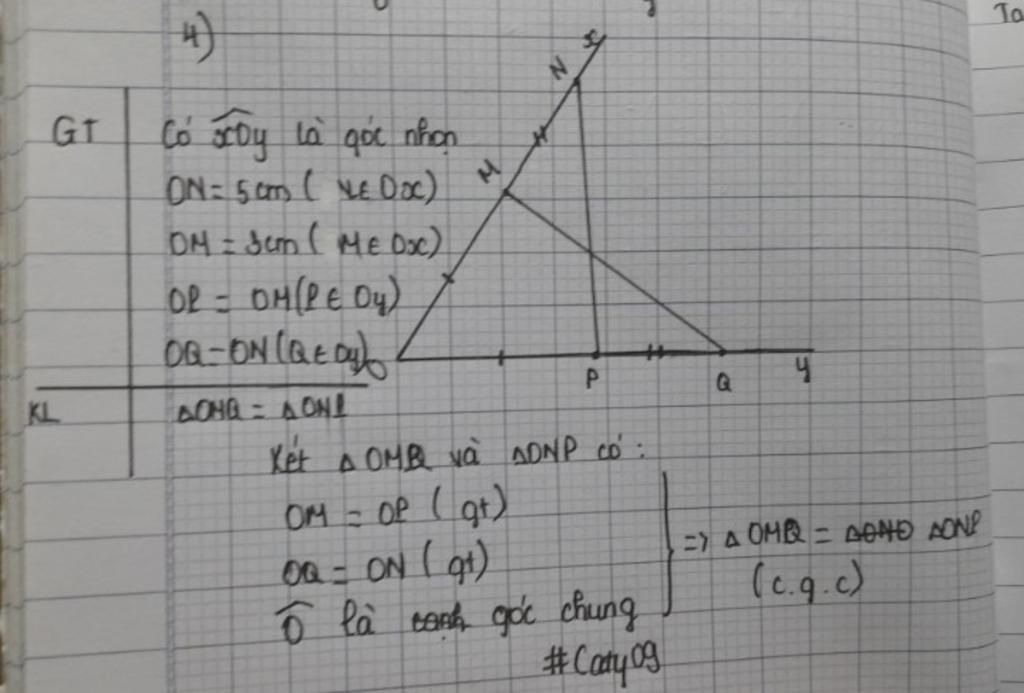 4)
Ta
GT
Có xOy là góc nhọn
ON = 5cm ( N ∈ Ox)
OM = 3cm ( M ∈ Ox)
OP = OM (P ∈ Oy)
OQ = ON (Q ∈ Oy)
KL
ΔOMQ = ΔONP
x
N
M
O
P
Q
y
Xét Δ OMQ và ΔONP có :
OM = OP ( gt)
OQ = ON ( gt)
Ô là góc chung
=> Δ OMQ = ΔONP
(c.g.c)
#Caty09